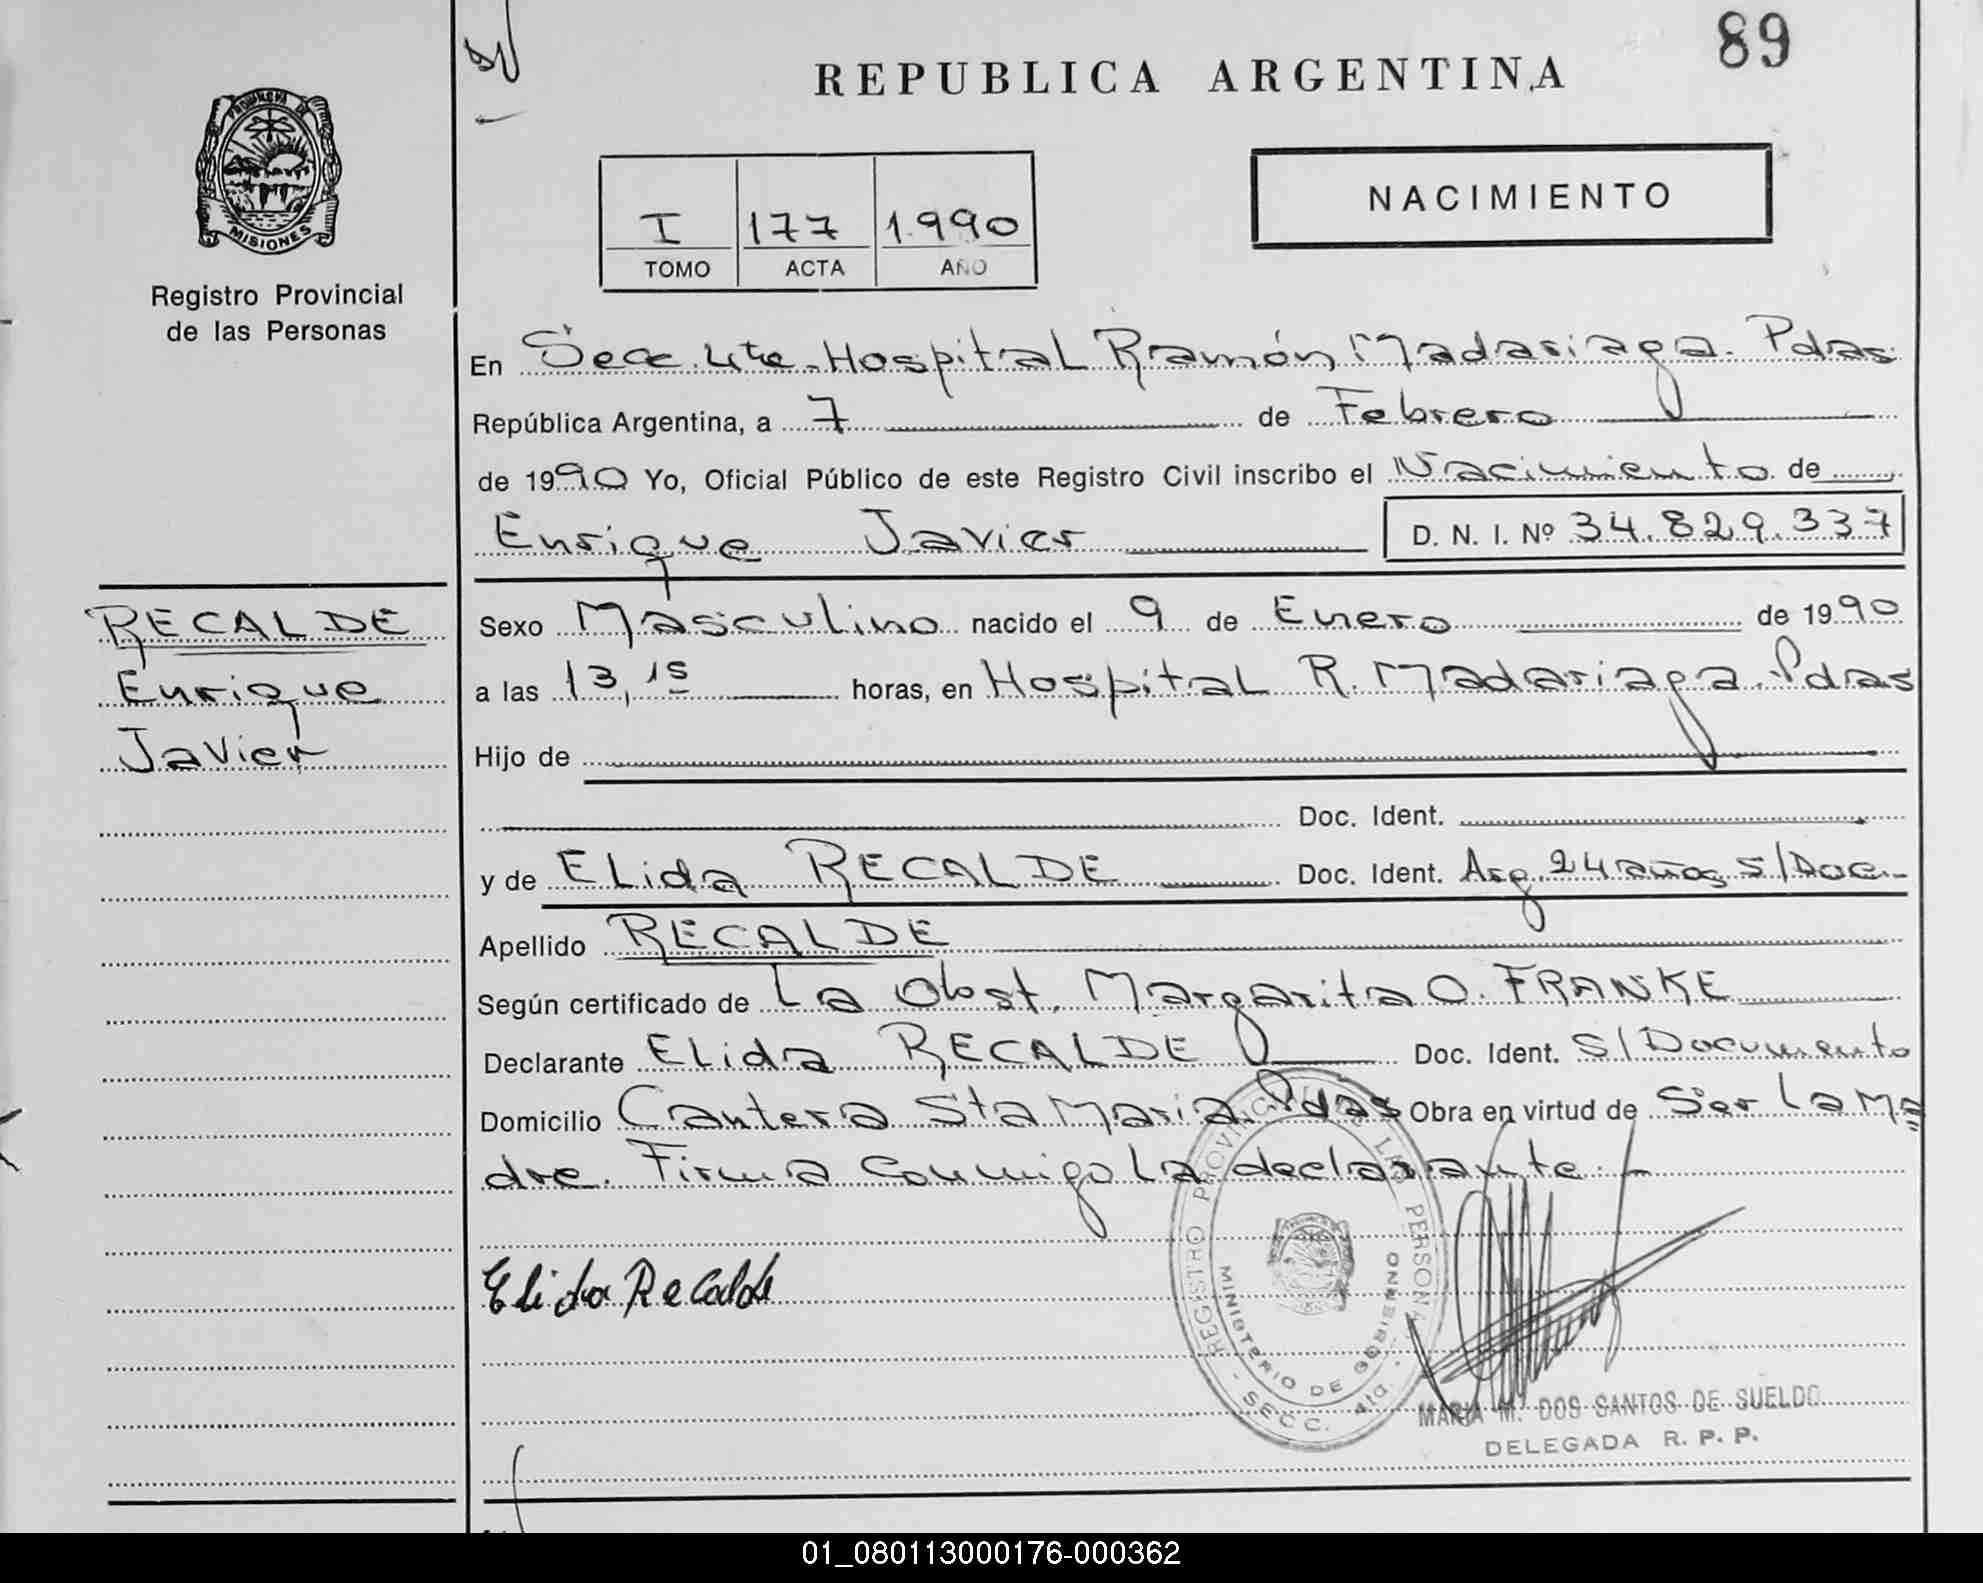 89
REPUBLICA ARGENTINA
PROVINCIA DE
MISIONES
Registro Provincial
de las Personas
I 177 1.990
TOMO ACTA AÑO
NACIMIENTO
En Secc. 4ta. Hospital Ramón Madariaga. Pdas
República Argentina, a 7 de Febrero
de 1990 Yo, Oficial Público de este Registro Civil inscribo el Nacimiento de
Enrique Javier D. N. I. Nº 34.829.337
RECALDE
Enrique
Javier
Sexo Masculino nacido el 9 de Enero de 1990
a las 13,15 horas, en Hospital R. Madariaga. Pdas
Hijo de
Doc. Ident.
y de Elida RECALDE Doc. Ident. Arg. 24 años S/Doc.-
Apellido RECALDE
Según certificado de La Obst. Margarita O. FRANKE
Declarante Elida RECALDE Doc. Ident. S/Documento
Domicilio Cantera Sta Maria. Pdas Obra en virtud de Ser La Ma
dre. Firma Conmigo La declarante.-
Elida Recalde
REGISTRO PROVINCIAL DE LAS PERSONAS
MINISTERIO DE GOBIERNO
- SECC. 4ta. -
MARIA M. DOS SANTOS DE SUELDO
DELEGADA R. P. P.
01_080113000176-000362